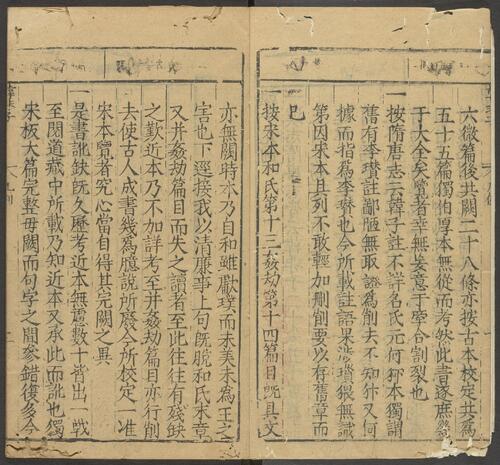 六微篇後共闕二十八條亦按古本校定共爲
五十五篇獨伯厚本無從而考然此書逐庶幾
于大全矣覽者幸無妄意于牽合割裂也
一按隋唐志云韓子註不詳名氏元何犿本獨謂
舊有李瓚註鄙陋無取盡爲削去不知犿又何
據而指爲李瓚也今所載註語未涉猥無識
第因宋本具列不敢輕加刪削要以存舊章而
已
一按宋本和氏第十三姦劫第十四篇目旣具文
亦無闕時本乃自和雖獻璞而未美未爲王之
害也下逕接我以清廉事上句旣脫和氏末章
又并姦劫篇目而失之讀者至此往往有殘缺
之歎近本乃不加詳考至并姦劫篇目亦行削
去使古人成書幾爲臆說所廢今所校定一准
宋本覽者究心當自得其完闕之異
一是書訛缺旣久歷考近本無慮數十皆出一轍
至閱道藏中所載乃知近本又承此而訛也獨
宋板大篇完整毋闕而句字之間參錯復多今